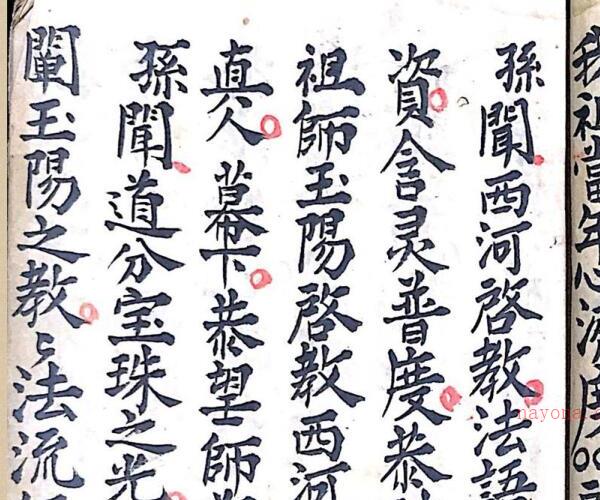 我祖當年心濟度
孫聞西河啓教法語
資含灵普度恭
祖師玉陽啓教西河
真人幕下恭望師
孫聞道分宝珠之光
闡玉陽之教〻法流
nayona